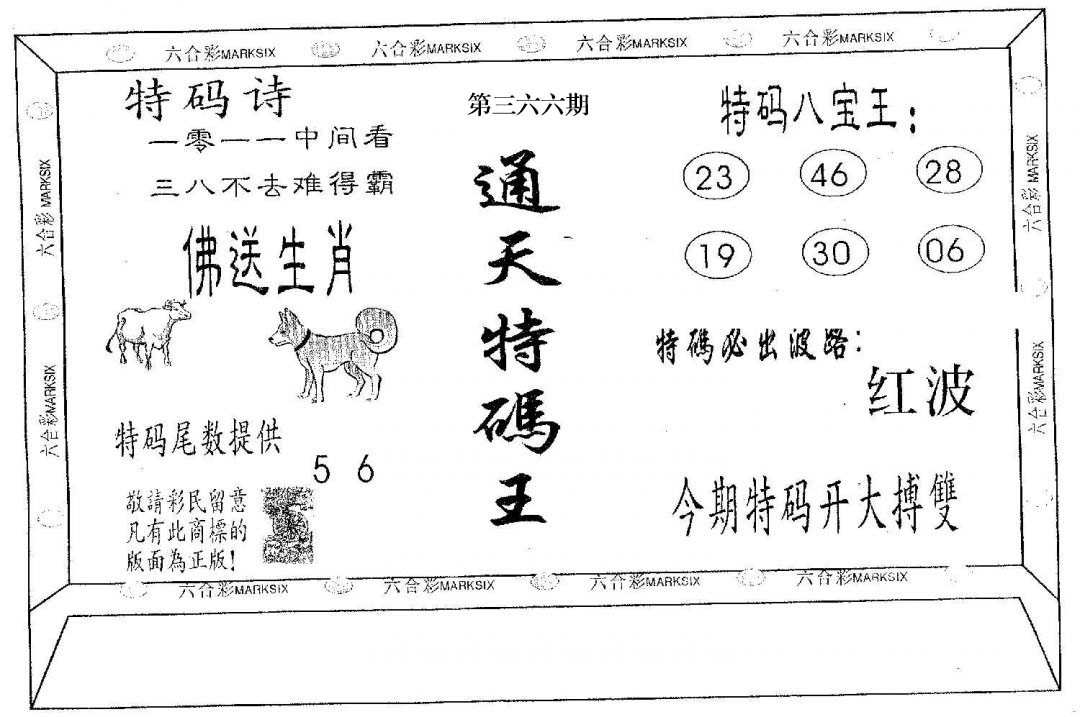 六合彩MARKSIX 六合彩MARKSIX 六合彩MARKSIX 六合彩MARKSIX
六合彩MARKSIX
六合彩MARKSIX
特码诗
一零一一中间看
三八不去难得霸
佛送生肖
特码尾数提供
5 6
敬請彩民留意
凡有此商標的
版面為正版!
第三六六期
通天特碼王
特码八宝王:
23 46 28
19 30 06
特碼必出波路:
红波
今期特码开大搏雙
六合彩MARKSIX
六合彩MARKSIX
六合彩MARKSIX 六合彩MARKSIX 六合彩MARKSIX 六合彩MARKSIX